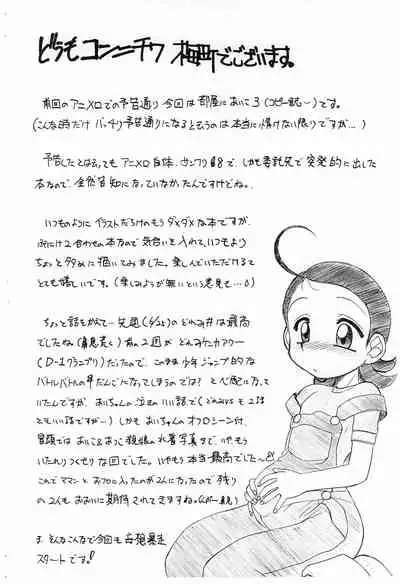 どうもコンニチワ 梅町でございます。
前回のアニメロでの予告通り今回は部屋においこ3(コピー誌〜)です。
(こんな時だけ バッチリ予告通りになるというのは本当に情けない限りですが…)
予告したとはいっても アニメロ自体、サンクリ18で、しかも委託先で突発的に出した
本なので、全然告知になっていなかったんですけどね。
いつものようにイラストだらけのもうダメダメな本ですが、
ちょっと多めに描いてみました。楽しんでいただけると
とても嬉しいです。(楽しみようが無いという意見も…。)
ちょっと話をかえて… 先週
のどれみ#は最高
でしたね。
前の2回がどれみカーアワー
(D-1グランプリ)だったので、このまま少年ジャンプ的な
バトルバトルの
になってしまうのでは? と心配になって
いたんですが、あいちゃんの泣きのいい話で(どれみ
も2話
ともいい話ですが…) しかもあいちゃんのオフロシーン付、
冒頭では
の水着写真まで、いやもう
いたれりつくせりな回でした。いやもう本当に最高でした〜
これでママンとおフロに入ったのが2人になったので 残り
の2人もおおいに期待されてきますね。
ま、そんなこんなで今回も
暴走
スタートです!